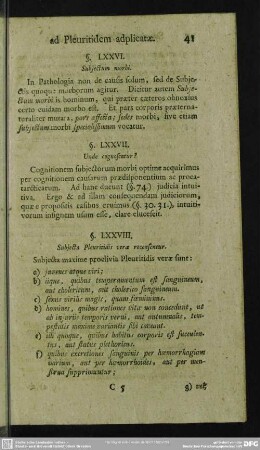 ad Pleuritidem adplicatæ. 41
§. LXXVI.
Subjectum morbi.
In Pathologia non de causis solum, sed de Subje-
ctis quoque morborum agitur. Dicitur autem Subje-
ctum morbi is hominum, qui præter cæteros obnoxius
certo cuidam morbo est. Et pars corporis præterna-
turaliter mutata, pars affecta; sedes morbi, sive etiam
subjectum morbi specialissimum vocatur.
§. LXXVII.
Unde cognoscitur?
Cognitionem subjectorum morbi optime acquirimus
per cognitionem causarum prædisponentium ac proca-
tarcticarum. Ad hanc ducunt (§. 74.) judicia intuiti-
va. Ergo & ad illam consequendam judiciorum,
quæ e propositis casibus eruimus (§. 30. 31.), intuiti-
vorum insignem usum esse, clare elucescit.
§. LXXVIII.
Subjecta Pleuritidis veræ recensentur.
Subjecta maxime proclivia Pleuritidis veræ sunt:
a) juvenes atque viri;
b) iique, quibus temperamentum est sanguineum,
aut cholericum, aut cholerico sanguineum.
c) sexus virilis magis, quam fœmininus.
d) homines, quibus rationes vitæ non concedunt, ut
ab injuriis temporis verni, aut autumnalis, tem-
pestatis nimium variantis sibi caveant.
e) illi quoque, quibus habitus corporis est succulen-
tus, aut status plethoricus.
f) quibus excretiones sanguinis per hæmorrhagiam
narium, aut per hæmorrhoides, aut per men-
strua supprimuntur;
C 5